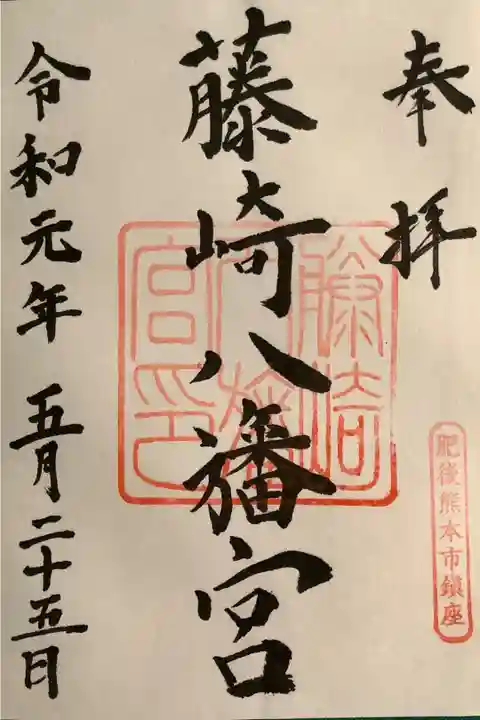 奉拝
肥後熊本市鎮座
藤崎八旛宮
藤崎
八旛
宮印
令和元年 五月二十五日